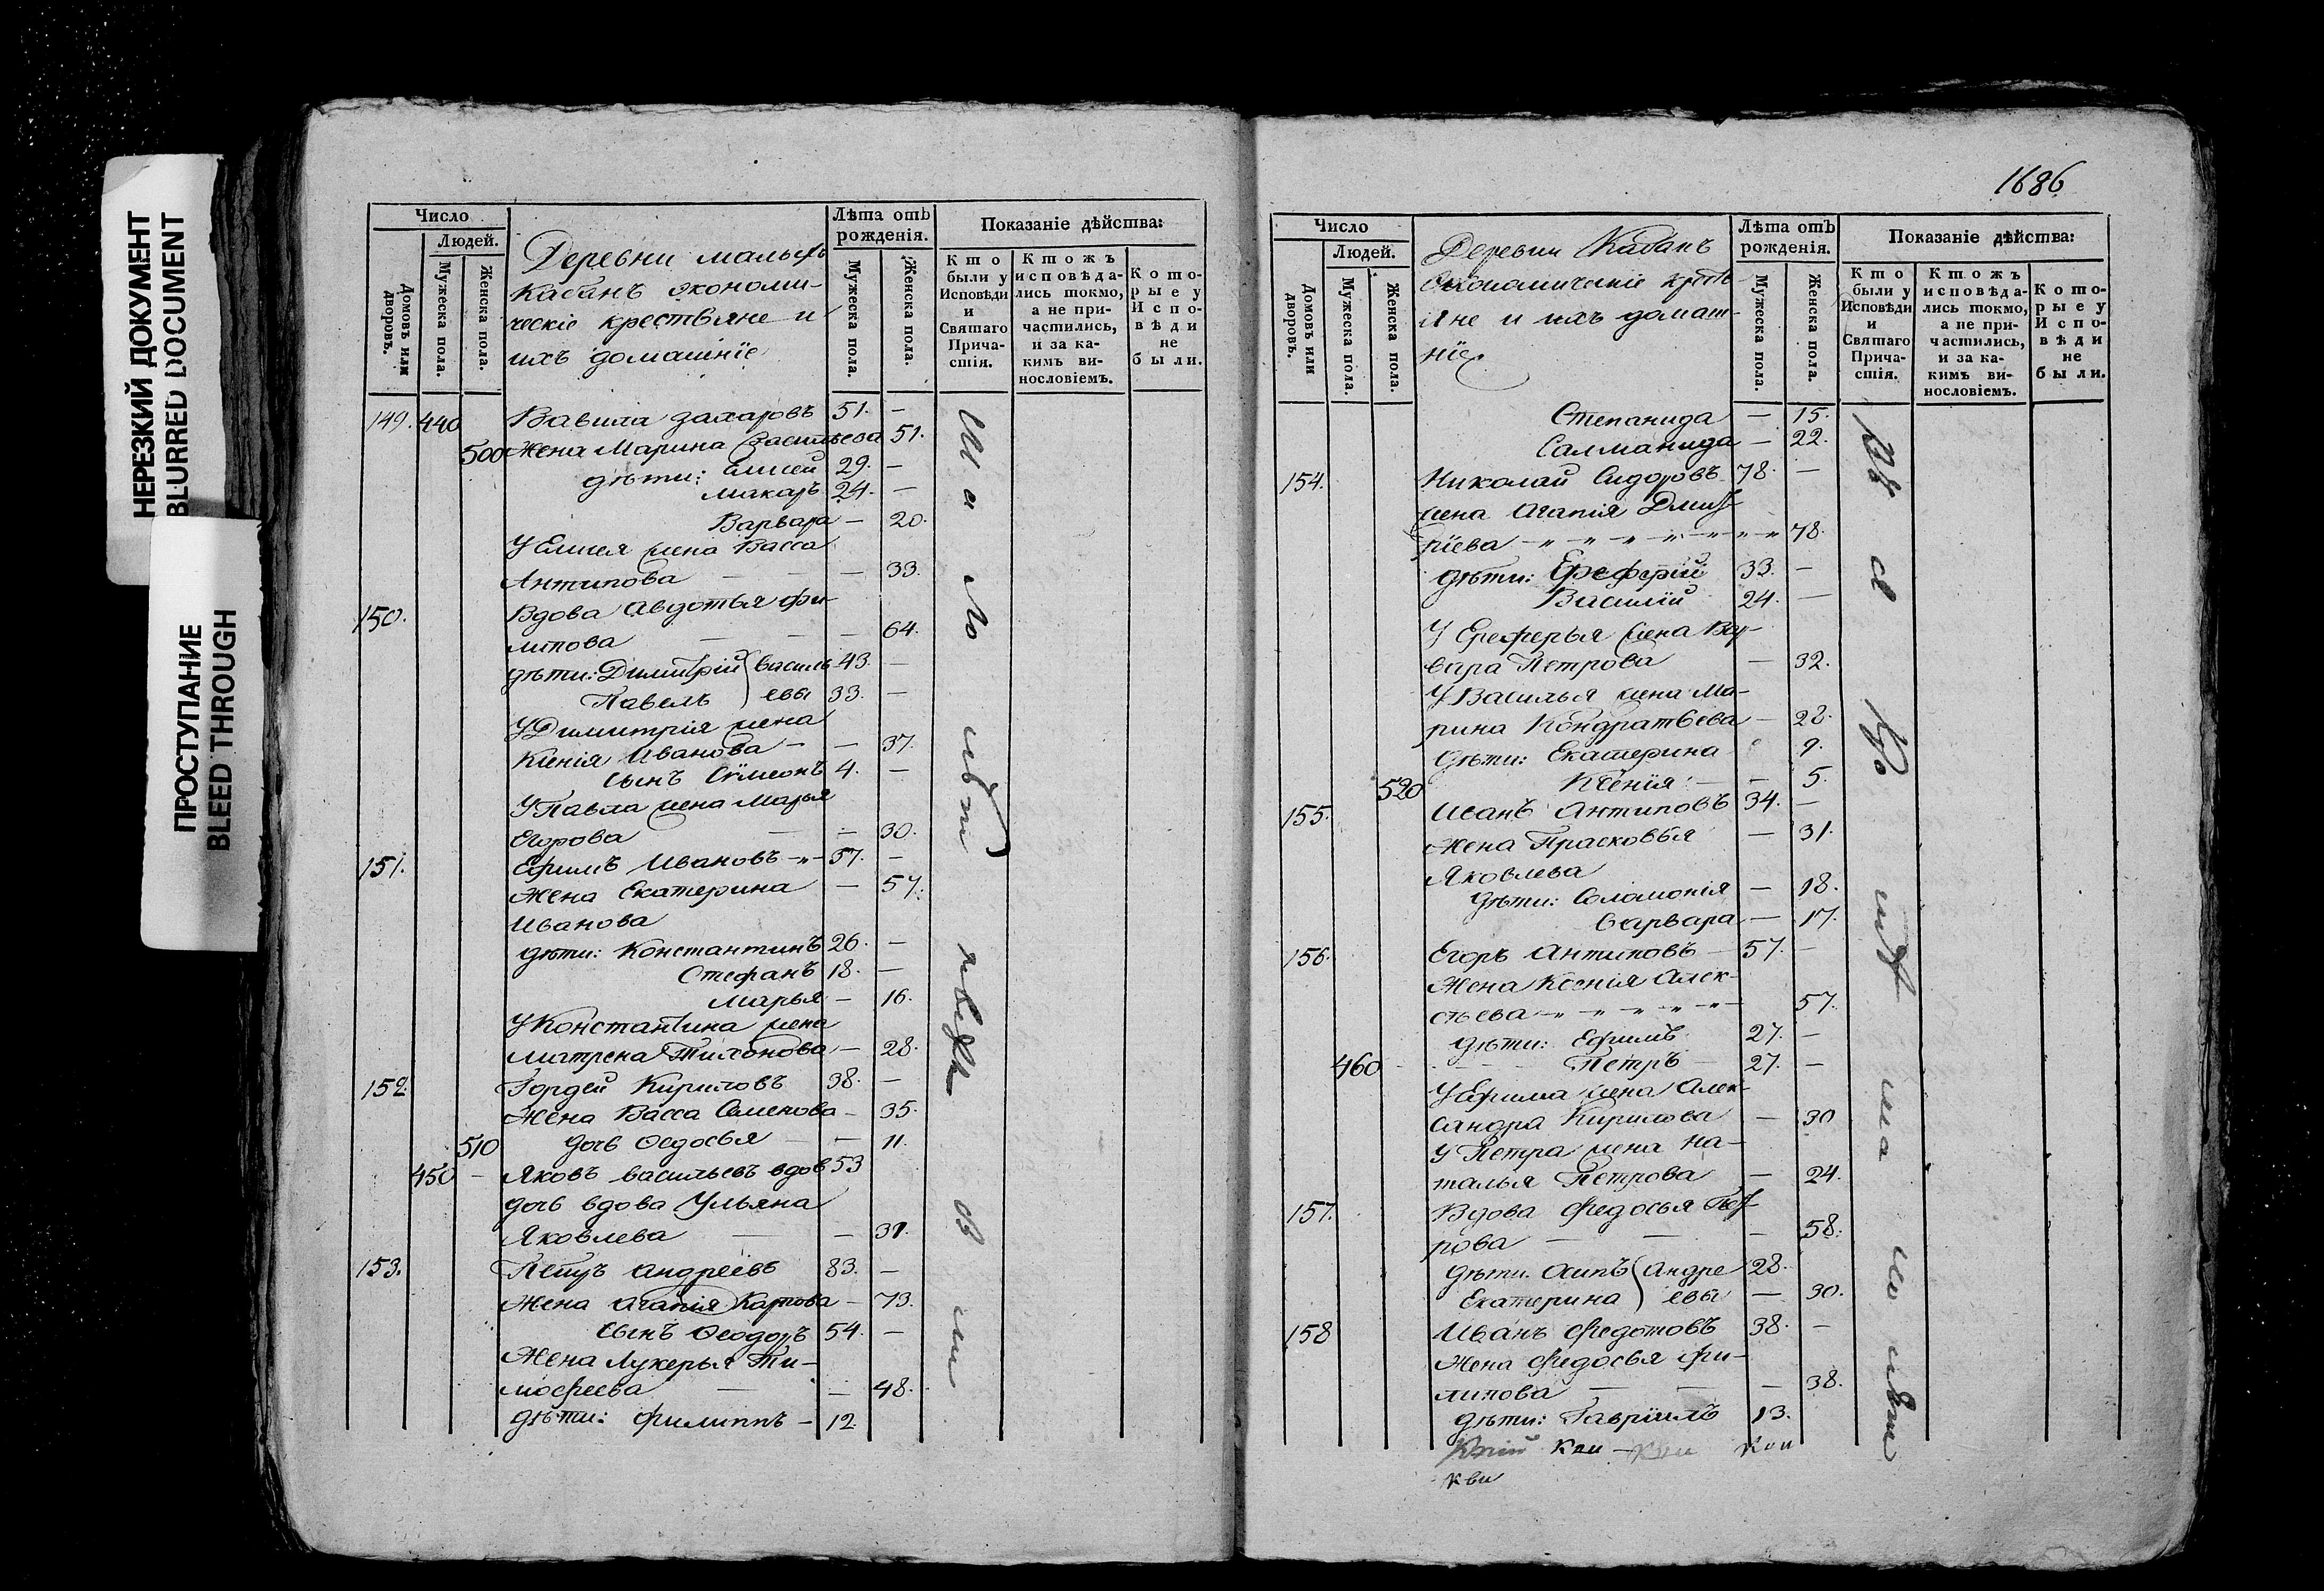 НЕРЕЗКИЙ ДОКУМЕНТ
BLURRED DOCUMENT
ПРОСТУПАНИЕ
BLEED THROUGH
Число
Людей.
Домовъ или дворовъ.
Мужеска пола.
Женска пола.
Деревни малыхъ
Кабанъ экономи-
ческіе крестьяне и
ихъ домашніе
Лѣта отъ рожденія.
Мужеска пола.
Женска пола.
Показаніе дѣйства:
Кто были у Исповѣди и Святаго Причастія.
Ктожъ исповѣдались токмо, а не причастились, и за какимъ винословіемъ.
Которые у Исповѣди не были.
149. 440 Вавила Захаровъ 51. —
500 Жена Марина Васильева 51.
дѣти: Елисей 29. —
Макаръ 24. —
Варвара — 20.
У Елисея жена Васса
Антипова — — 33.
150. Вдова Авдотья Фи-
липова — — — 64.
дѣти: Димитрій ( Василь 43. —
Павелъ ) евы 33. —
У Димитрія жена
Ксенія Иванова — — 37.
сынъ Сѵмеонъ 4. —
У Павла жена Марья
Егорова — — 30.
151. Ефимъ Ивановъ 57. —
Жена Екатерина — 57.
Иванова
дѣти: Константинъ 26. —
Стефанъ 18. —
Марья — 16.
У Константина жена
Матрена Тихонова — 28.
152. Гордей Кириловъ 38. —
Жена Васса Семенова — 35.
510 дочь Ѳедосья — — 11.
450 — Яковъ Васильевъ вдов 53
дочь вдова Ульяна
Яковлева — — 31.
153. Петръ Андреевъ 83. —
Жена Агапія Карпова — 73.
сынъ Ѳеодоръ 54. —
Жена Лукерья Ти-
мофеева — — 48.
дѣти: Филиппъ — 12.
1686
Число
Людей.
Домовъ или дворовъ.
Мужеска пола.
Женска пола.
Деревни Кабанъ
Экономическіе крѣсть
яне и ихъ домаш-
ніе.
Лѣта отъ рожденія.
Мужеска пола.
Женска пола.
Показаніе дѣйства:
Кто были у Исповѣди и Святаго Причастія.
Ктожъ исповѣдались токмо, а не причастились, и за какимъ винословіемъ.
Которые у Исповѣди не были.
Степанида — 15.
Салманида — 22.
154. Николай Сидоровъ 78. —
жена Агапія Дмит-
ріева 78.
дѣти: Ереферій 33. —
Василій 24. —
У Ереферья жена Вар-
вара Петрова — 32.
У Василья жена Ма-
рина Кондратьева — 22.
дѣти: Екатерина 9.
520 Ксенія — — 5.
155. Иванъ Антиповъ 34. —
Жена Прасковья — 31.
Яковлева
дѣти: Соломонія — 18.
Варвара — 17.
156. Егоръ Антиповъ — 57. —
Жена Ксенія Алек-
сѣева 57.
дѣти: Ефимъ 27. —
460 Петръ 27. —
У Ефима жена Алек-
сандра Кирилова — 30
У Петра жена На-
талья Петрова — 24.
157. Вдова Федосья Пет-
рова — — — 58.
дѣти: Аипъ ( Андре 28.
Екатерина ) евы — 30.
158 Иванъ Федотовъ 38. —
Жена Федосья Фи-
липова — — — 38.
дѣти: Гавріилъ 13.